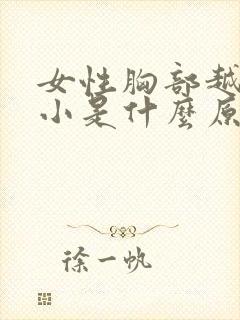 女性胸部越
小是什麼原
徐一帆